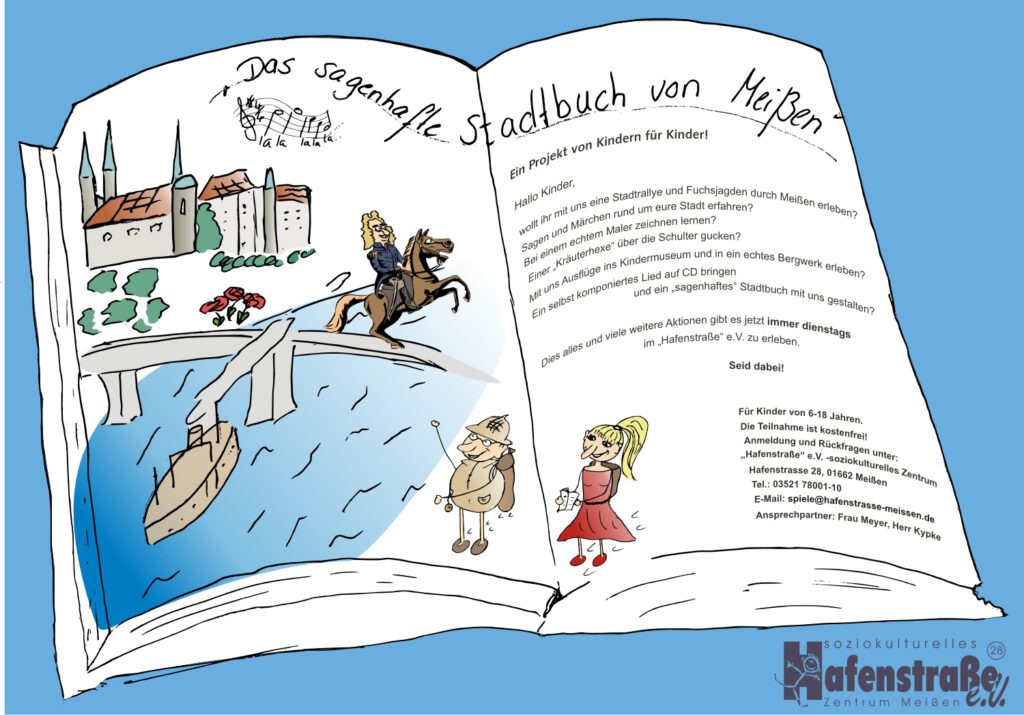 Das sagenhafte Stadtbuch von Meißen
la la la la la
Ein Projekt von Kindern für Kinder!
Hallo Kinder,
wollt ihr mit uns eine Stadtrallye und Fuchsjagden durch Meißen erleben?
Sagen und Märchen rund um eure Stadt erfahren?
Bei einem echtem Maler zeichnen lernen?
Einer „Kräuterhexe" über die Schulter gucken?
Mit uns Ausflüge ins Kindermuseum und in ein echtes Bergwerk erleben?
Ein selbst komponiertes Lied auf CD bringen
und ein „sagenhaftes" Stadtbuch mit uns gestalten?
Dies alles und viele weitere Aktionen gibt es jetzt immer dienstags
im „Hafenstraße" e.V. zu erleben.
Seid dabei!
Für Kinder von 6-18 Jahren.
Die Teilnahme ist kostenfrei!
Anmeldung und Rückfragen unter:
„Hafenstraße" e.V. -soziokulturelles Zentrum
Hafenstrasse 28, 01662 Meißen
Tel.: 03521 78001-10
E-Mail: spiele@hafenstrasse-meissen.de
Ansprechpartner: Frau Meyer, Herr Kypke
soziokulturelles 28
Hafenstraße e.V.
Zentrum Meißen